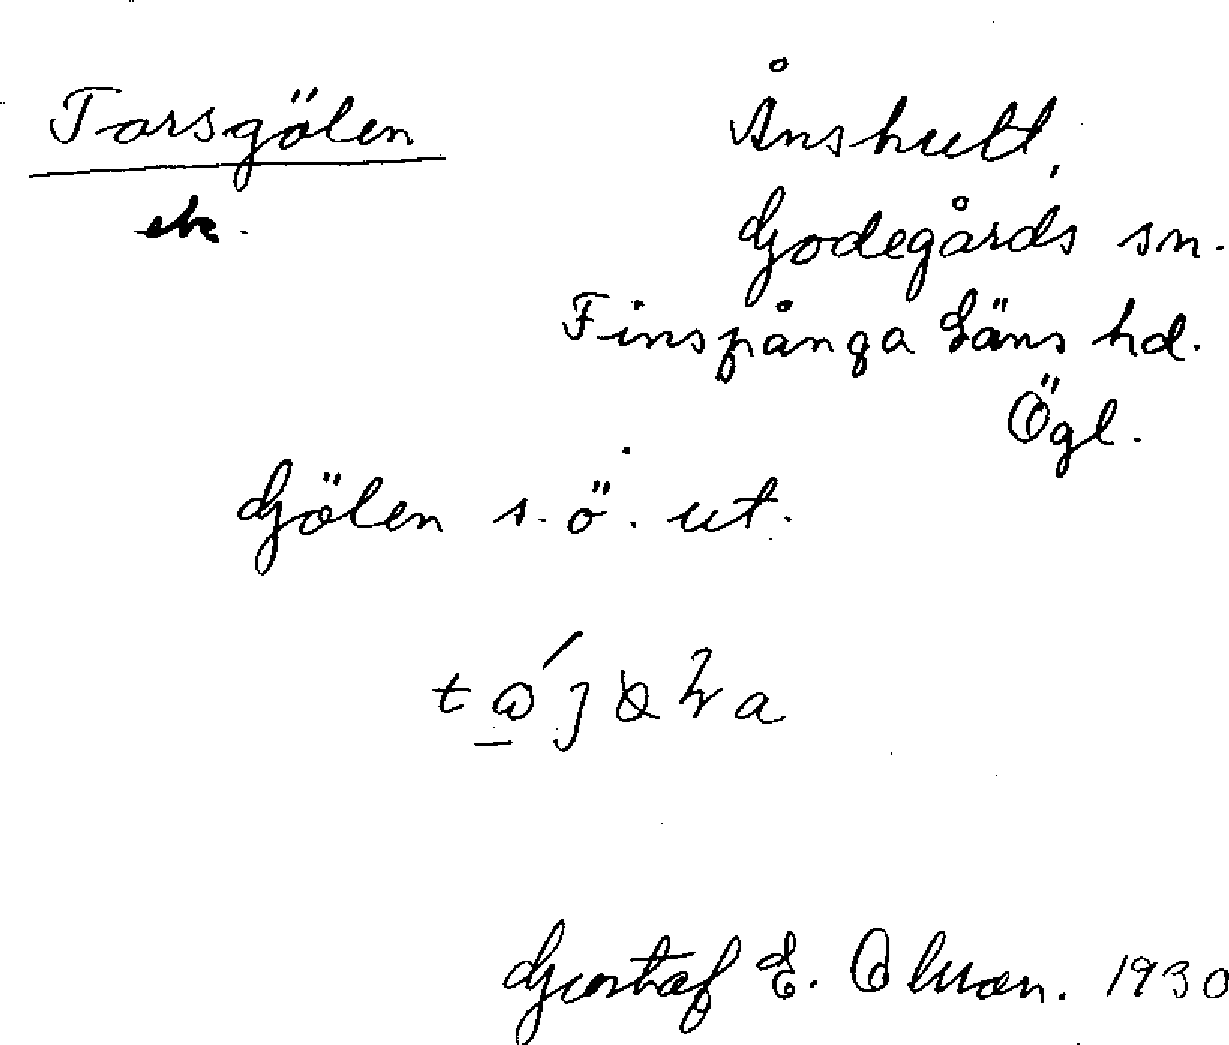 Torsgölen
ek.
Ånshult,
Godegårds sn.
Finspånga läns hd.
Ögl.
Gölen s.ö. ut.
Gustaf E. Olsson. 1930